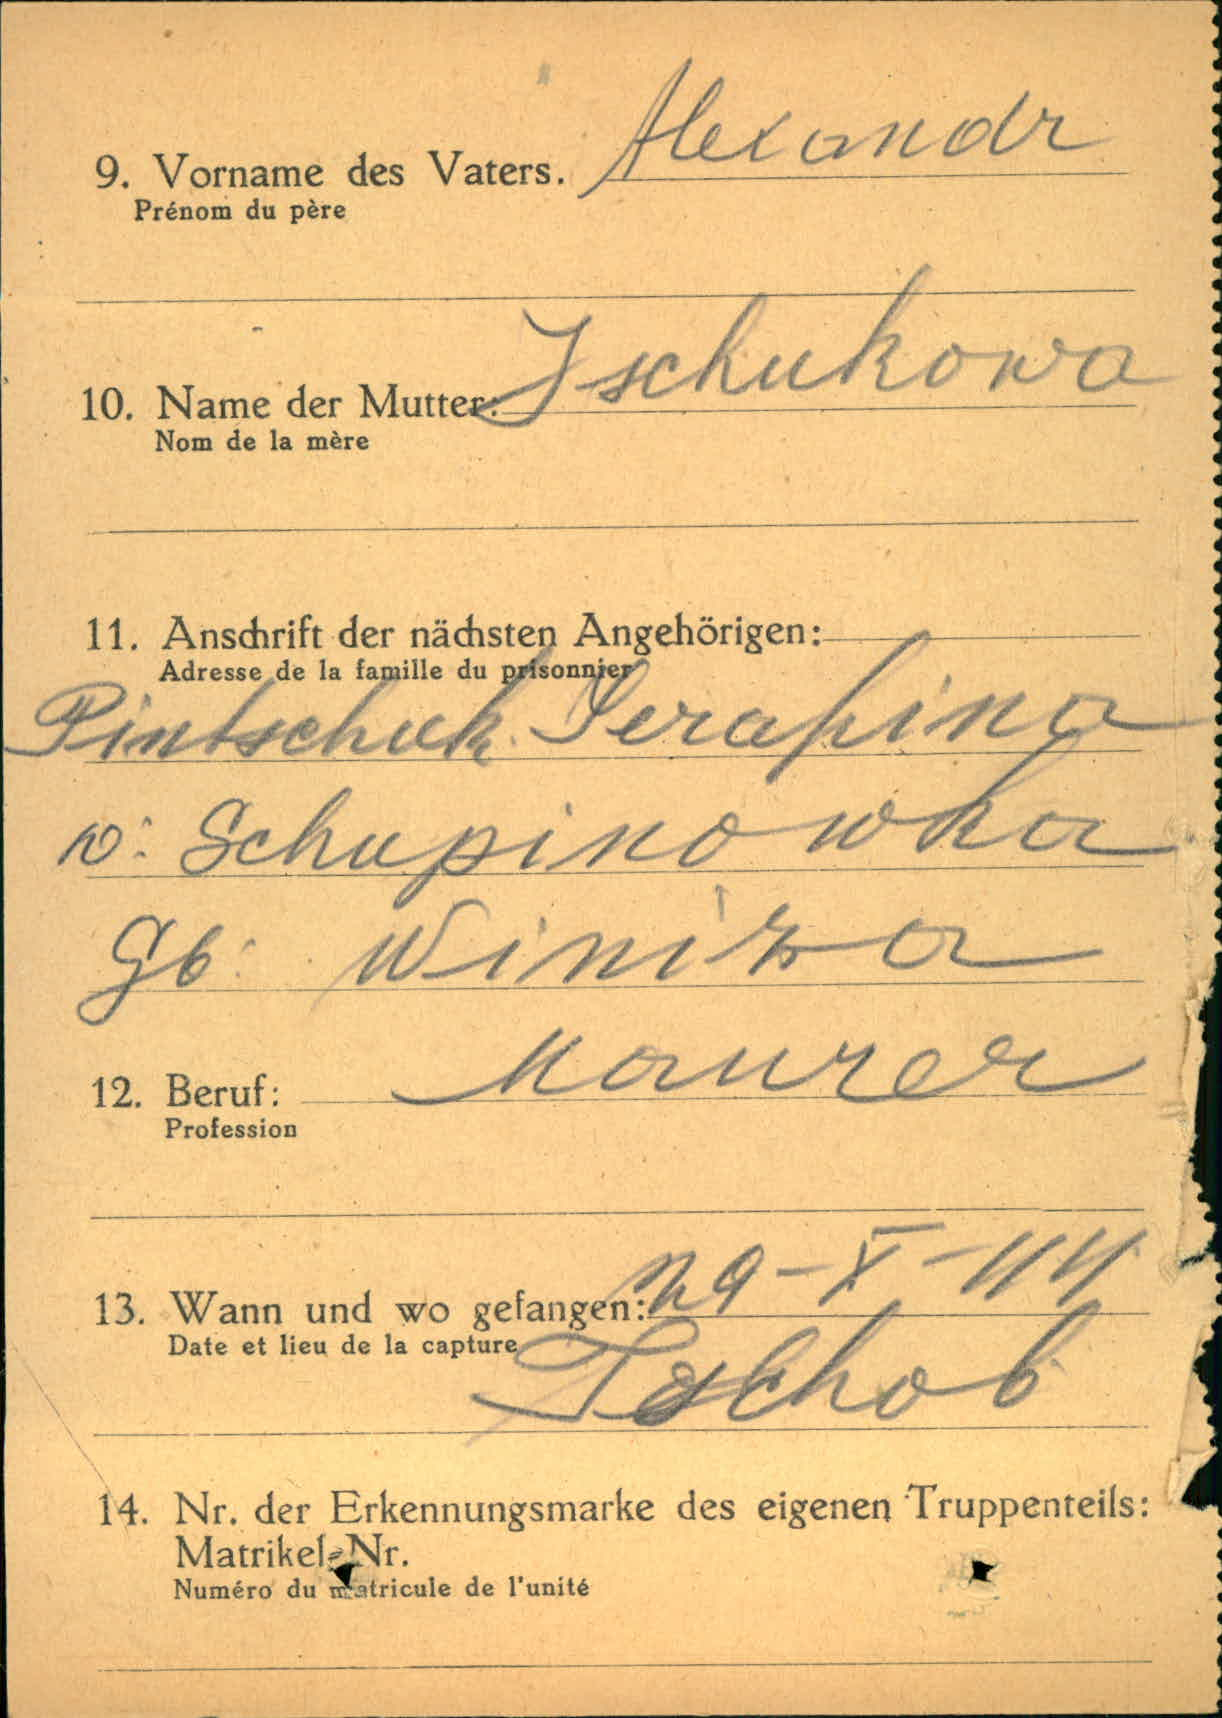 9. Vorname des Vaters. Alexandr
Prénom du père
10. Name der Mutter: Tschukowa
Nom de la mère
11. Anschrift der nächsten Angehörigen:
Adresse de la famille du prisonnier
Pintschuk Serafina
w: Schupinowka
Gb: Winiza
12. Beruf: Maurer
Profession
13. Wann und wo gefangen: 29-X-44
Date et lieu de la capture
14. Nr. der Erkennungsmarke des eigenen Truppenteils:
Matrikel-Nr.
Numéro du matricule de l'unité